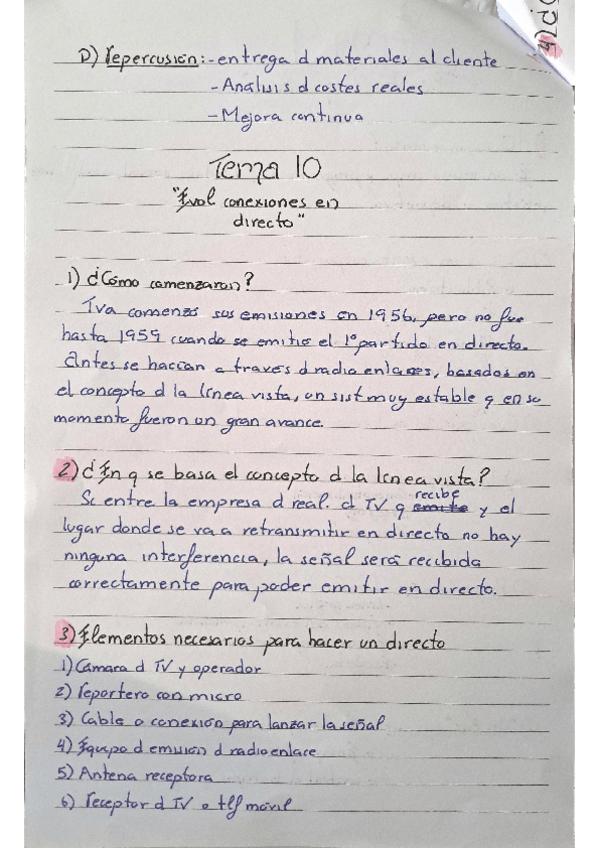 D) repercusión:-entrega d materiales al cliente
-Análisis d costes reales
-Mejora continua
Tema 10
"Evol conexiones en
directo"
1) ¿Cómo comenzaron?
Tva comenzó sus emisiones en 1956, pero no fue
hasta 1959 cuando se emitió el 1º partido en directo.
Antes se hacían a través d radio enlaces, basados en
el concepto d la línea vista, un sist muy estable q en su
momento fueron un gran avance.
2) ¿En q se basa el concepto d la línea vista?
Si entre la empresa d real. d TV q recibe y el
lugar donde se va a retransmitir en directo no hay
ninguna interferencia, la señal será recibida
correctamente para poder emitir en directo.
3) Elementos necesarios para hacer un directo
1) Cámara d TV y operador
2) reportero con micro
3) Cable o conexión para lanzar la señal
4) Equipo d emisión d radioenlace
5) Antena receptora
6) receptor d TV o tlf móvil